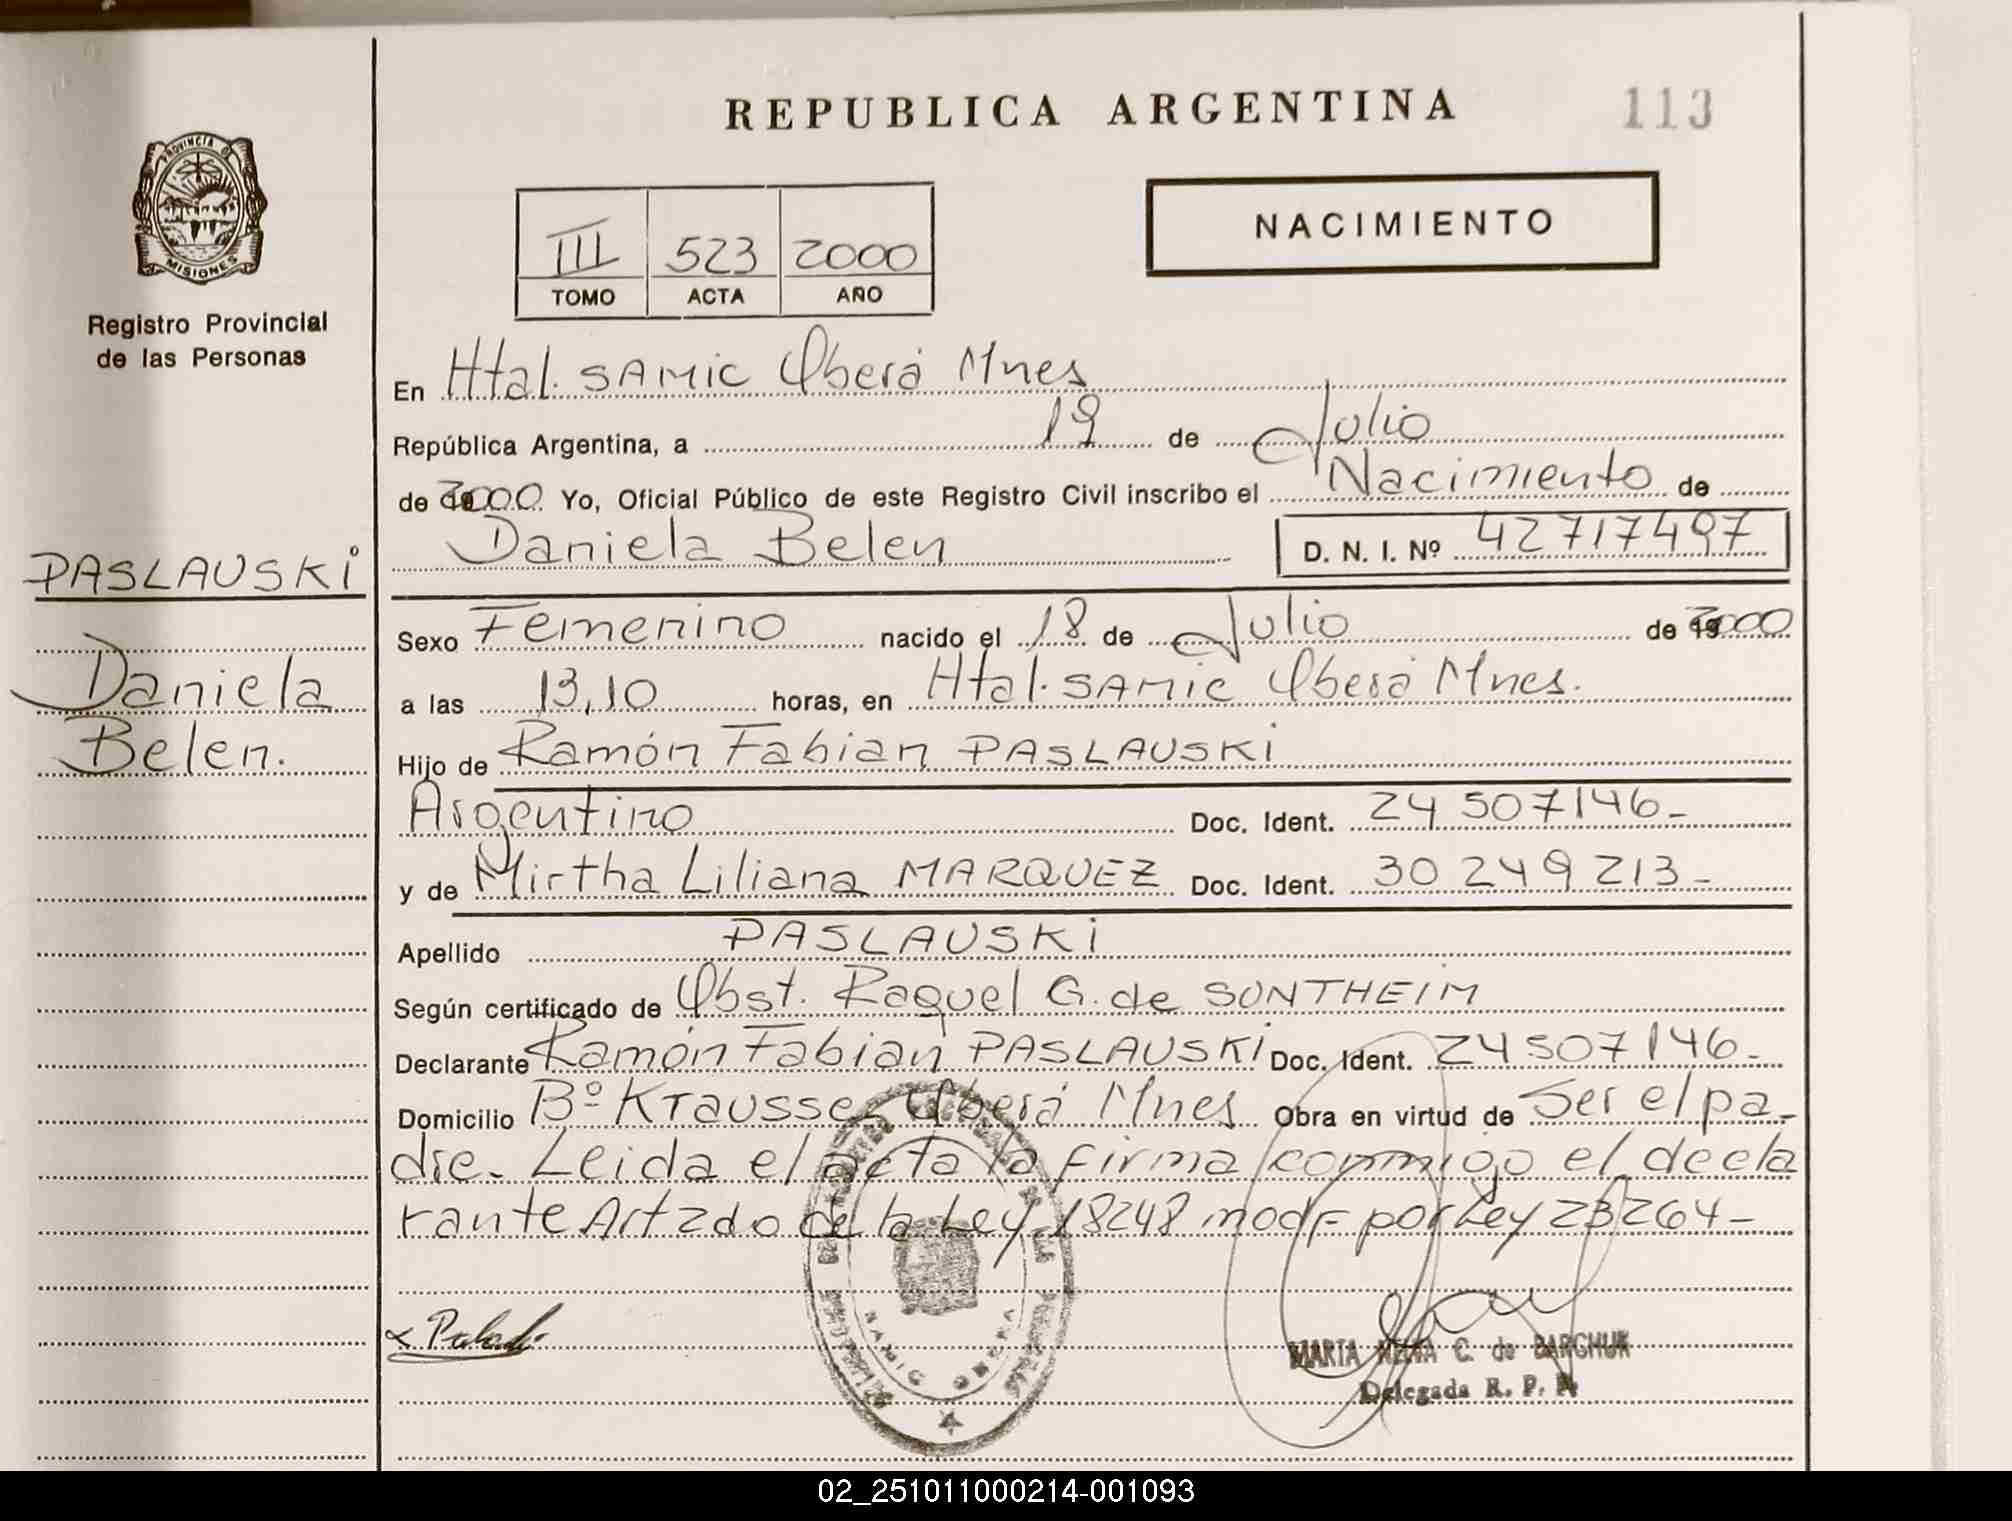 REPUBLICA ARGENTINA
113
PROVINCIA DE
MISIONES
Registro Provincial
de las Personas
III 523 2000
TOMO ACTA AÑO
NACIMIENTO
En Htal. SAMIC Oberá Mnes
República Argentina, a 19 de Julio
de 2000 Yo, Oficial Público de este Registro Civil inscribo el Nacimiento de
Daniela Belen D. N. I. Nº 42717497
PASLAUSKi
Daniela
Belen.
Sexo Femenino nacido el 18 de Julio de 2000
a las 13,10 horas, en Htal. SAMIC Oberá Mnes.
Hijo de Ramón Fabian PASLAUSKi
Argentino Doc. Ident. 24 507146-
y de Mirtha Liliana MARQUEZ Doc. Ident. 30 249 213-
Apellido PASLAUSKi
Según certificado de Obst. Raquel G. de SONTHEIM
Declarante Ramón Fabian PASLAUSKi Doc. Ident. 24 507146-
Domicilio Bº Krausse- Oberá Mnes Obra en virtud de Ser el pa-
dre- Leida el acta la firma conmigo el decla
rante Art 2do de la Ley 18248 modF por Ley 23264-
SAMIC OBERA
MARTA C. de BARCHUK
Delegada R. P. P.
02_251011000214-001093